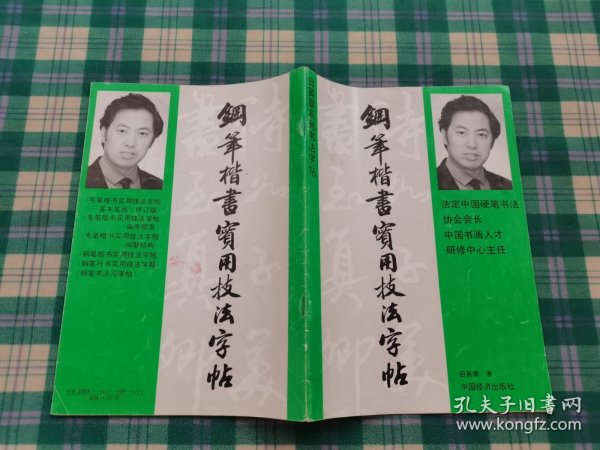 鋼筆楷書實用技法字帖
毛笔楷书实用技法字帖
基本笔画（修订版）
毛笔楷书实用技法字帖
偏旁部首
毛笔楷书实用技法字帖
间架结构
钢笔楷书实用技法字帖
钢笔行书实用技法字帖
钢笔书法习字帖
鋼筆楷書實用技法字帖
法定中国硬笔书法
协会会长
中国书画人才
研修中心主任
田英章 著
中国经济出版社
孔夫子旧书网
www.kongfz.com